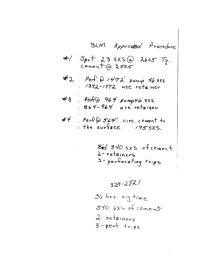 BLM Approved Procedure
#1 Spot 23 SXS @ 2605 Tg.
cement @ 2505
#2 Perf @ 1472' pump 46 sxs
1372-1472 use retainer
#3 Perf @ 964 pump 46 sxs
864-964 use retainer
#4 Perf @ 564' circ. cement to
the surface 175 SXS.
Bid 340 sxs. of cement
2- retainers
3- perforating trips
327-2521
36 hrs. rig time
340 sxs of cement
2. retainers
3- perf. trips